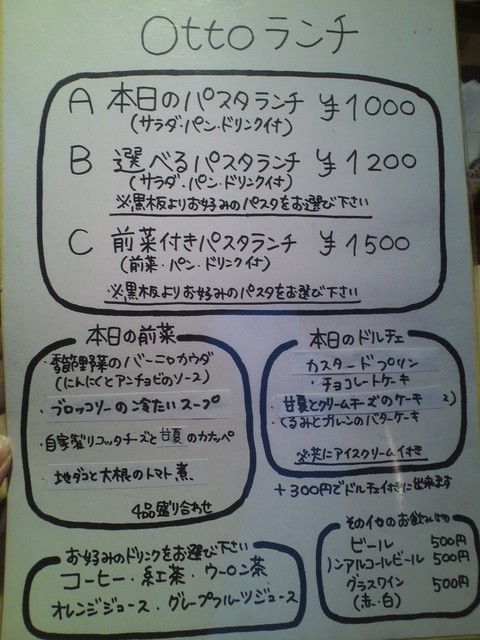 Otto ランチ
A 本日のパスタランチ ¥1000
(サラダ・パン・ドリンク付)
B 選べるパスタランチ ¥1200
(サラダ・パン・ドリンク付)
※黒板よりお好みのパスタをお選び下さい
C 前菜付きパスタランチ ¥1500
(前菜・パン・ドリンク付)
※黒板よりお好みのパスタをお選び下さい
本日の前菜
・季節野菜のバーニャカウダ
(にんにくとアンチョビのソース)
・ブロッコリーの冷たいスープ
・自家製リコッタチーズと甘夏のカナッペ
・地ダコと大根のトマト煮
4品盛り合わせ
本日のドルチェ
カスタードプリン
・チョコレートケーキ
甘夏とクリームチーズのケーキ
・くるみとプルーンのバターケーキ
※共にアイスクリーム付き
+300円でドルチェ付きに出来ます
お好みのドリンクをお選び下さい
コーヒー・紅茶・ウーロン茶
オレンジジュース・グレープフルーツジュース
その他のお飲み物
ビール 500円
ノンアルコールビール 500円
グラスワイン 500円
(赤・白)